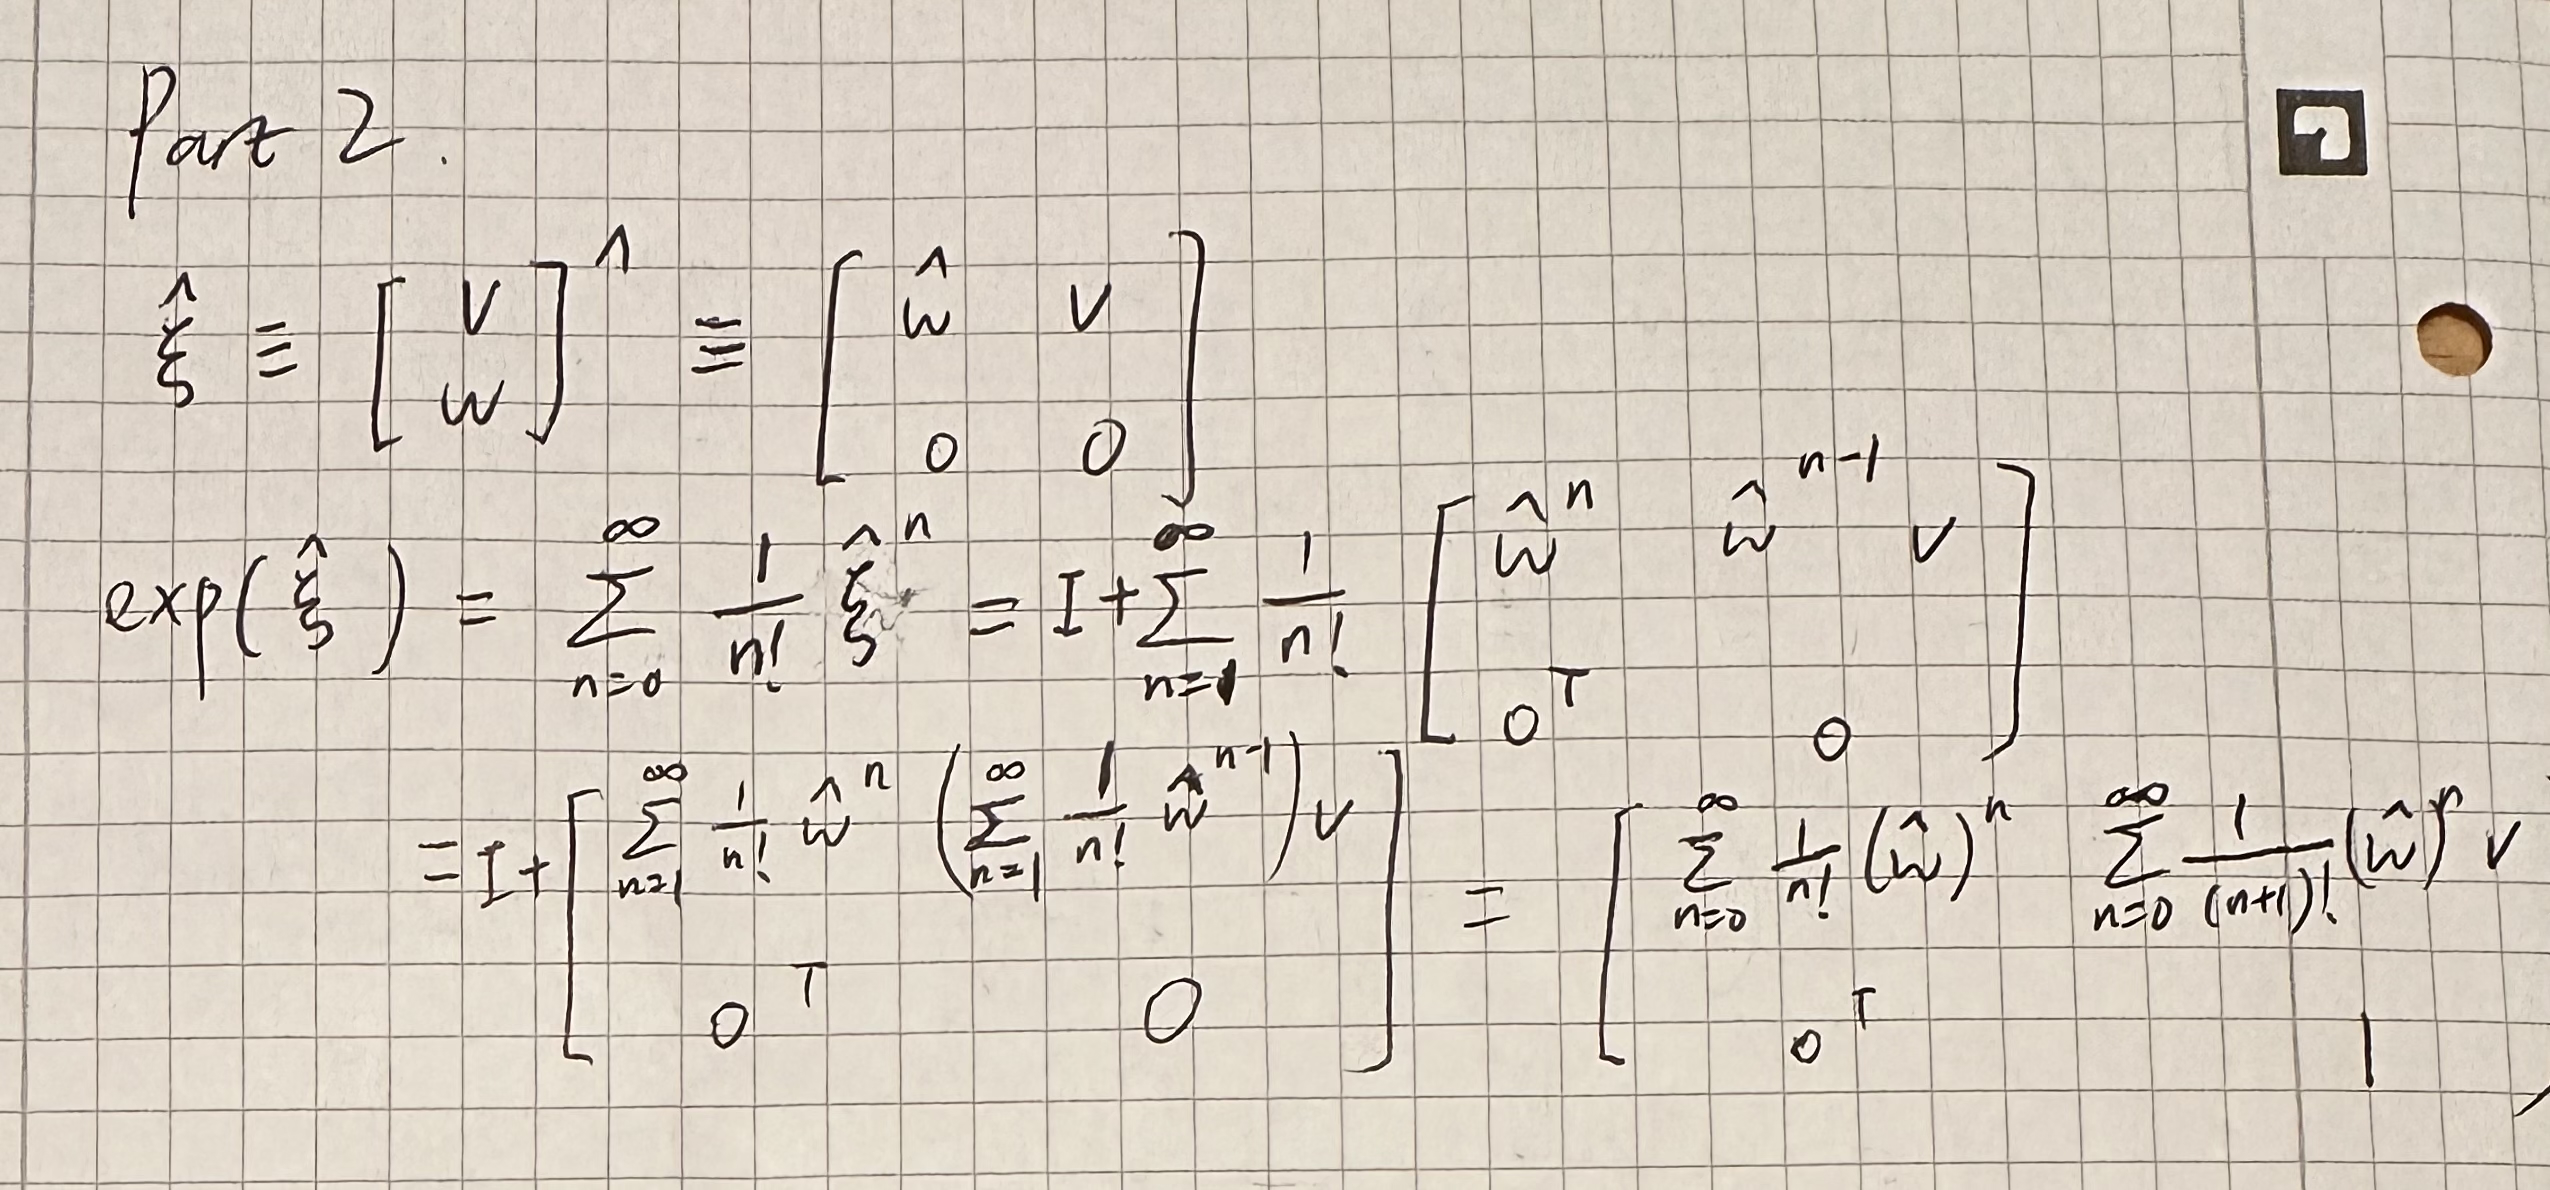 Part 2.
ξ̂ ≡ [ v ; w ]^∧ ≡ [ ŵ  v ; 0  0 ]
exp(ξ̂) = ∑_{n=0}^{∞} 1/n! ξ̂^n = I + ∑_{n=1}^{∞} 1/n! [ ŵ^n  ŵ^{n-1} v ; 0^T  0 ]
= I + [ ∑_{n=1}^{∞} 1/n! ŵ^n  (∑_{n=1}^{∞} 1/n! ŵ^{n-1}) v ; 0^T  0 ] = [ ∑_{n=0}^{∞} 1/n! (ŵ)^n  ∑_{n=0}^{∞} 1/(n+1)! (ŵ)^n v ; 0^T  1 ]